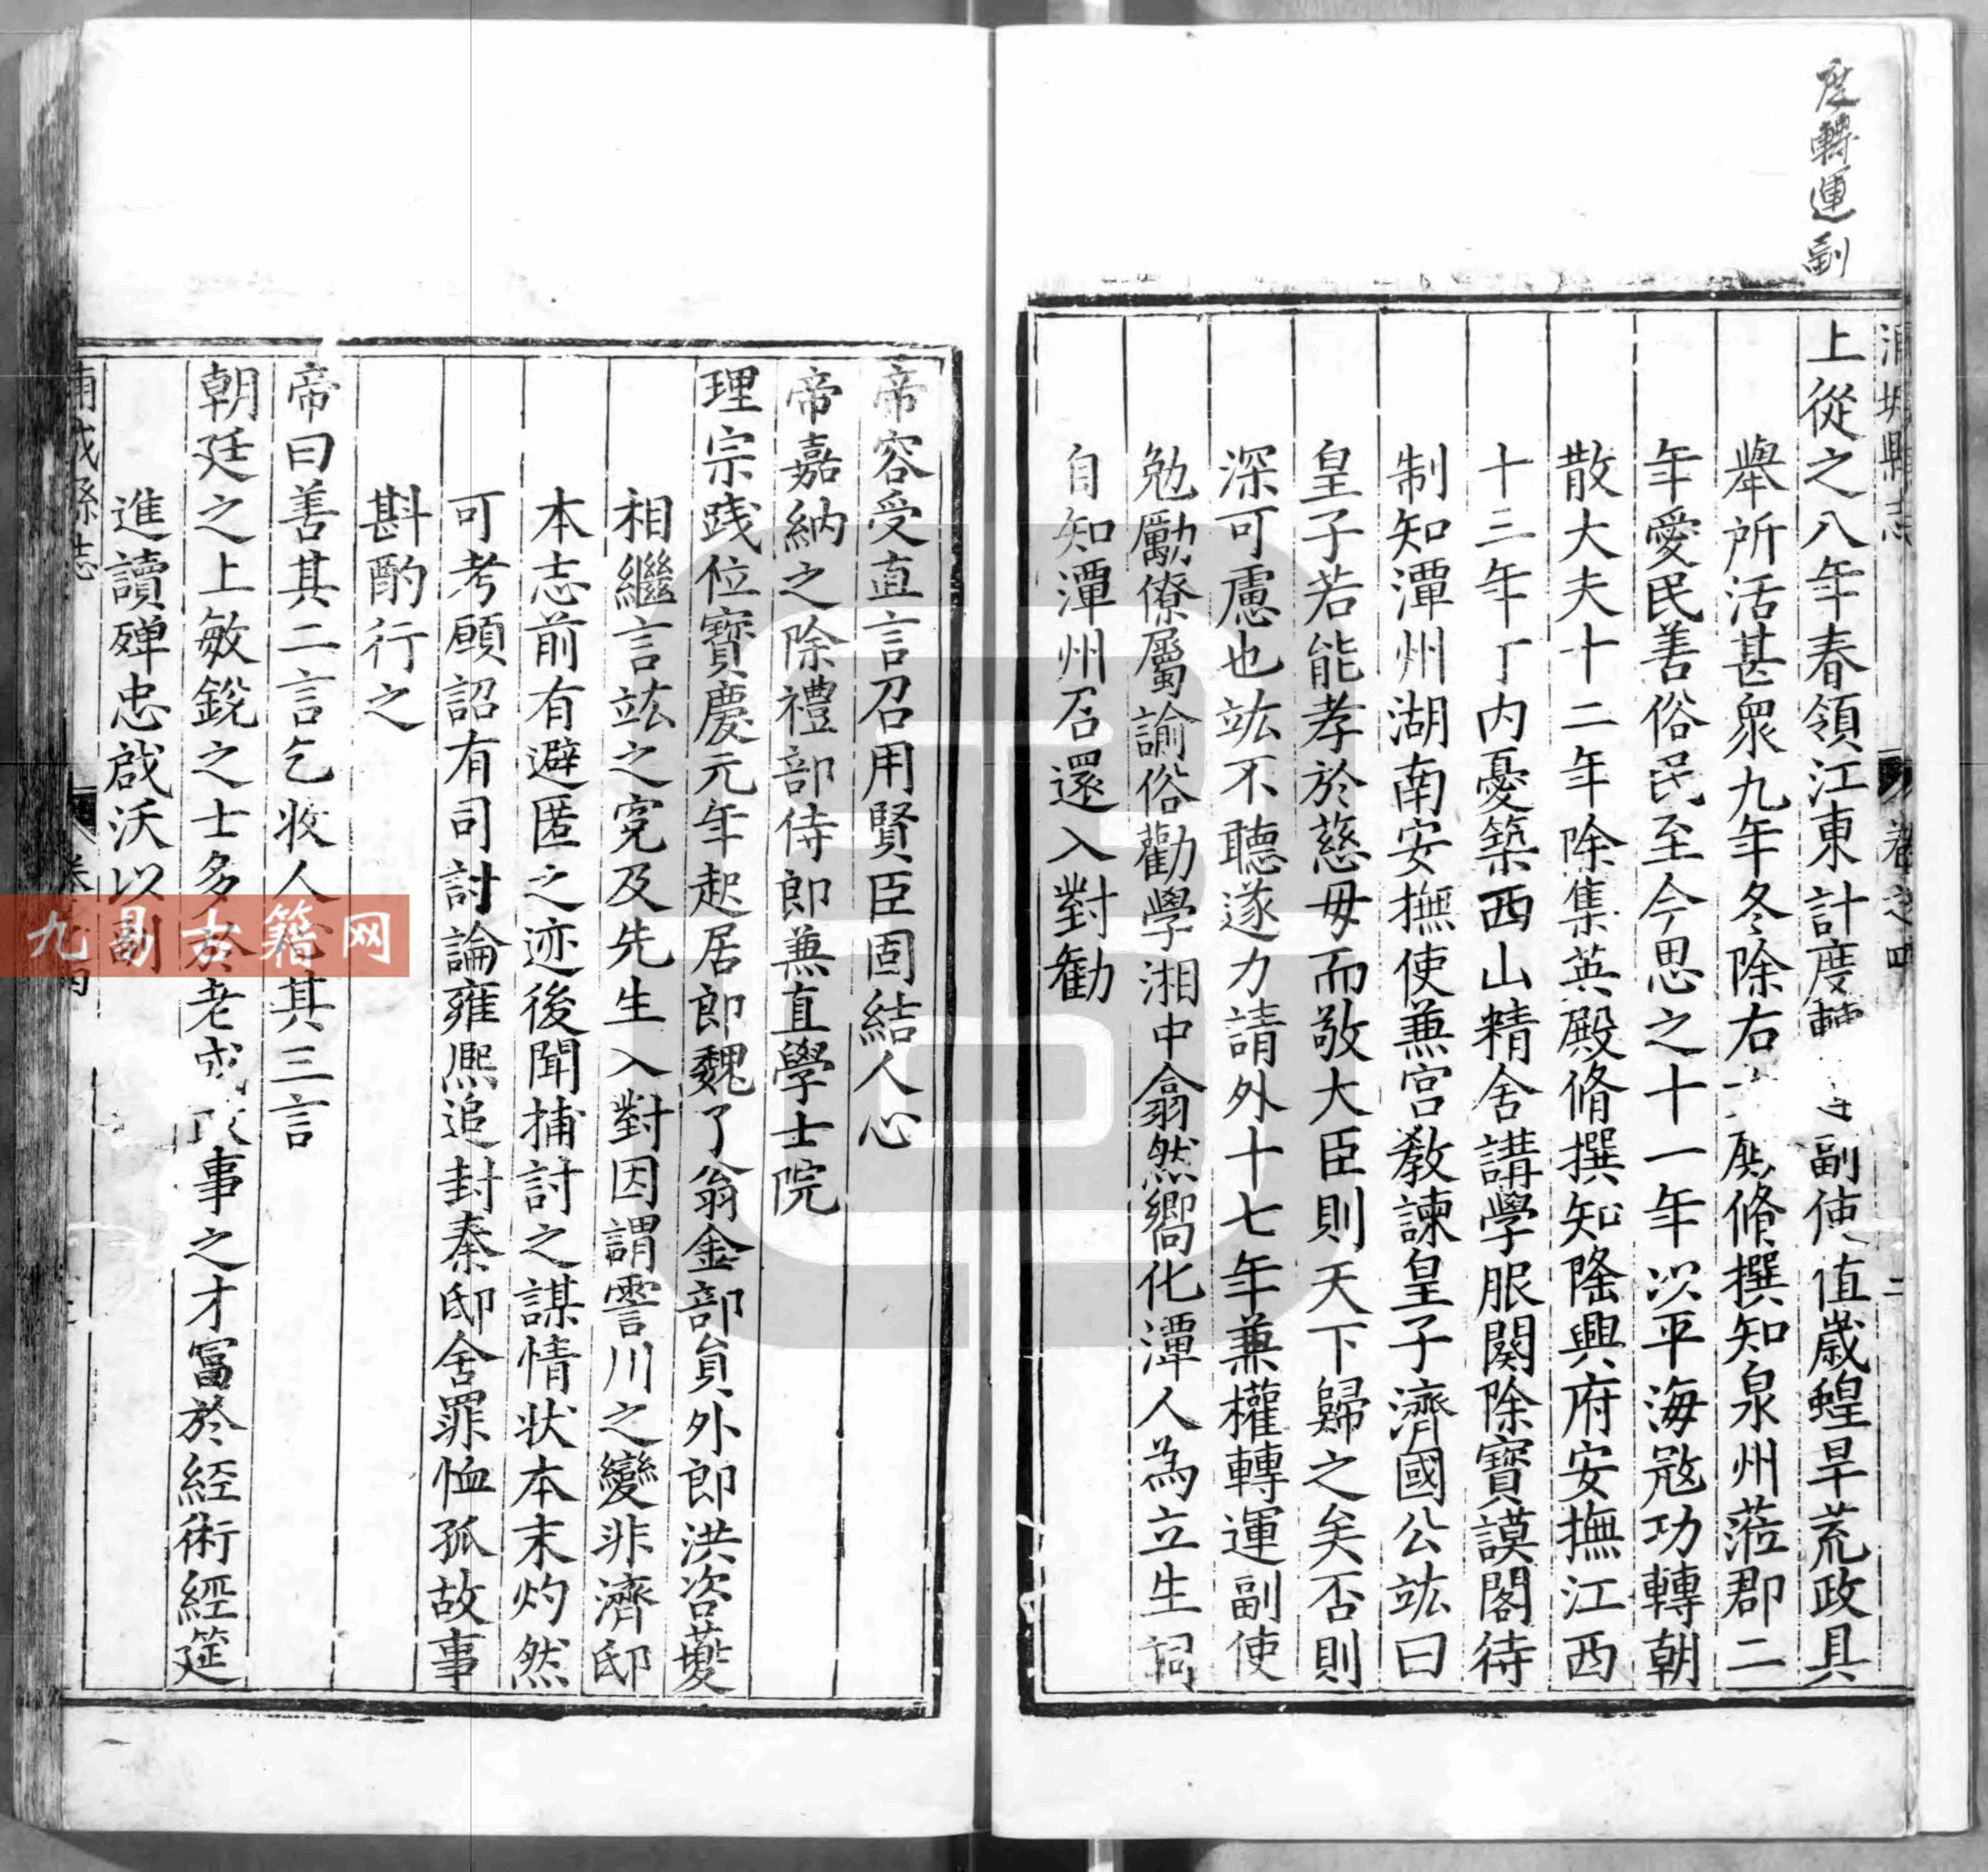 度轉運副
浦城縣志 卷之四 二
上從之八年春領江東計度轉 副使值歲蝗旱荒政具
舉所活甚衆九年冬除右 殿脩撰知泉州蒞郡二
年愛民善俗民至今思之十一年以平海冦功轉朝
散大夫十二年除集英殿脩撰知隆興府安撫江西
十三年丁内憂築西山精舍講學服闋除寶謨閣待
制知潭州湖南安撫使兼宫教諫皇子濟國公竑曰
皇子若能孝於慈母而敬大臣則天下歸之矣否則
深可慮也竑不聽遂力請外十七年兼權轉運副使
勉勵僚屬諭俗勸學湘中翕然嚮化潭人為立生祠
自知潭州召還入對勸
帝容受直言召用賢臣固結人心
帝嘉納之除禮部侍郎兼直學士院
理宗践位寶慶元年起居郎魏了翁金部員外郎洪咨夔
相繼言竑之寃及先生入對因謂霅川之變非濟邸
本志前有避匿之迹後聞捕討之謀情状本末灼然
可考願詔有司討論雍熈追封秦邸舍罪恤孤故事
斟酌行之
帝曰善其二言乞收人 其三言
朝廷之上敏銳之士多於老成政事之才富於經術經筵
進讀殫忠啟沃以
九易古籍网